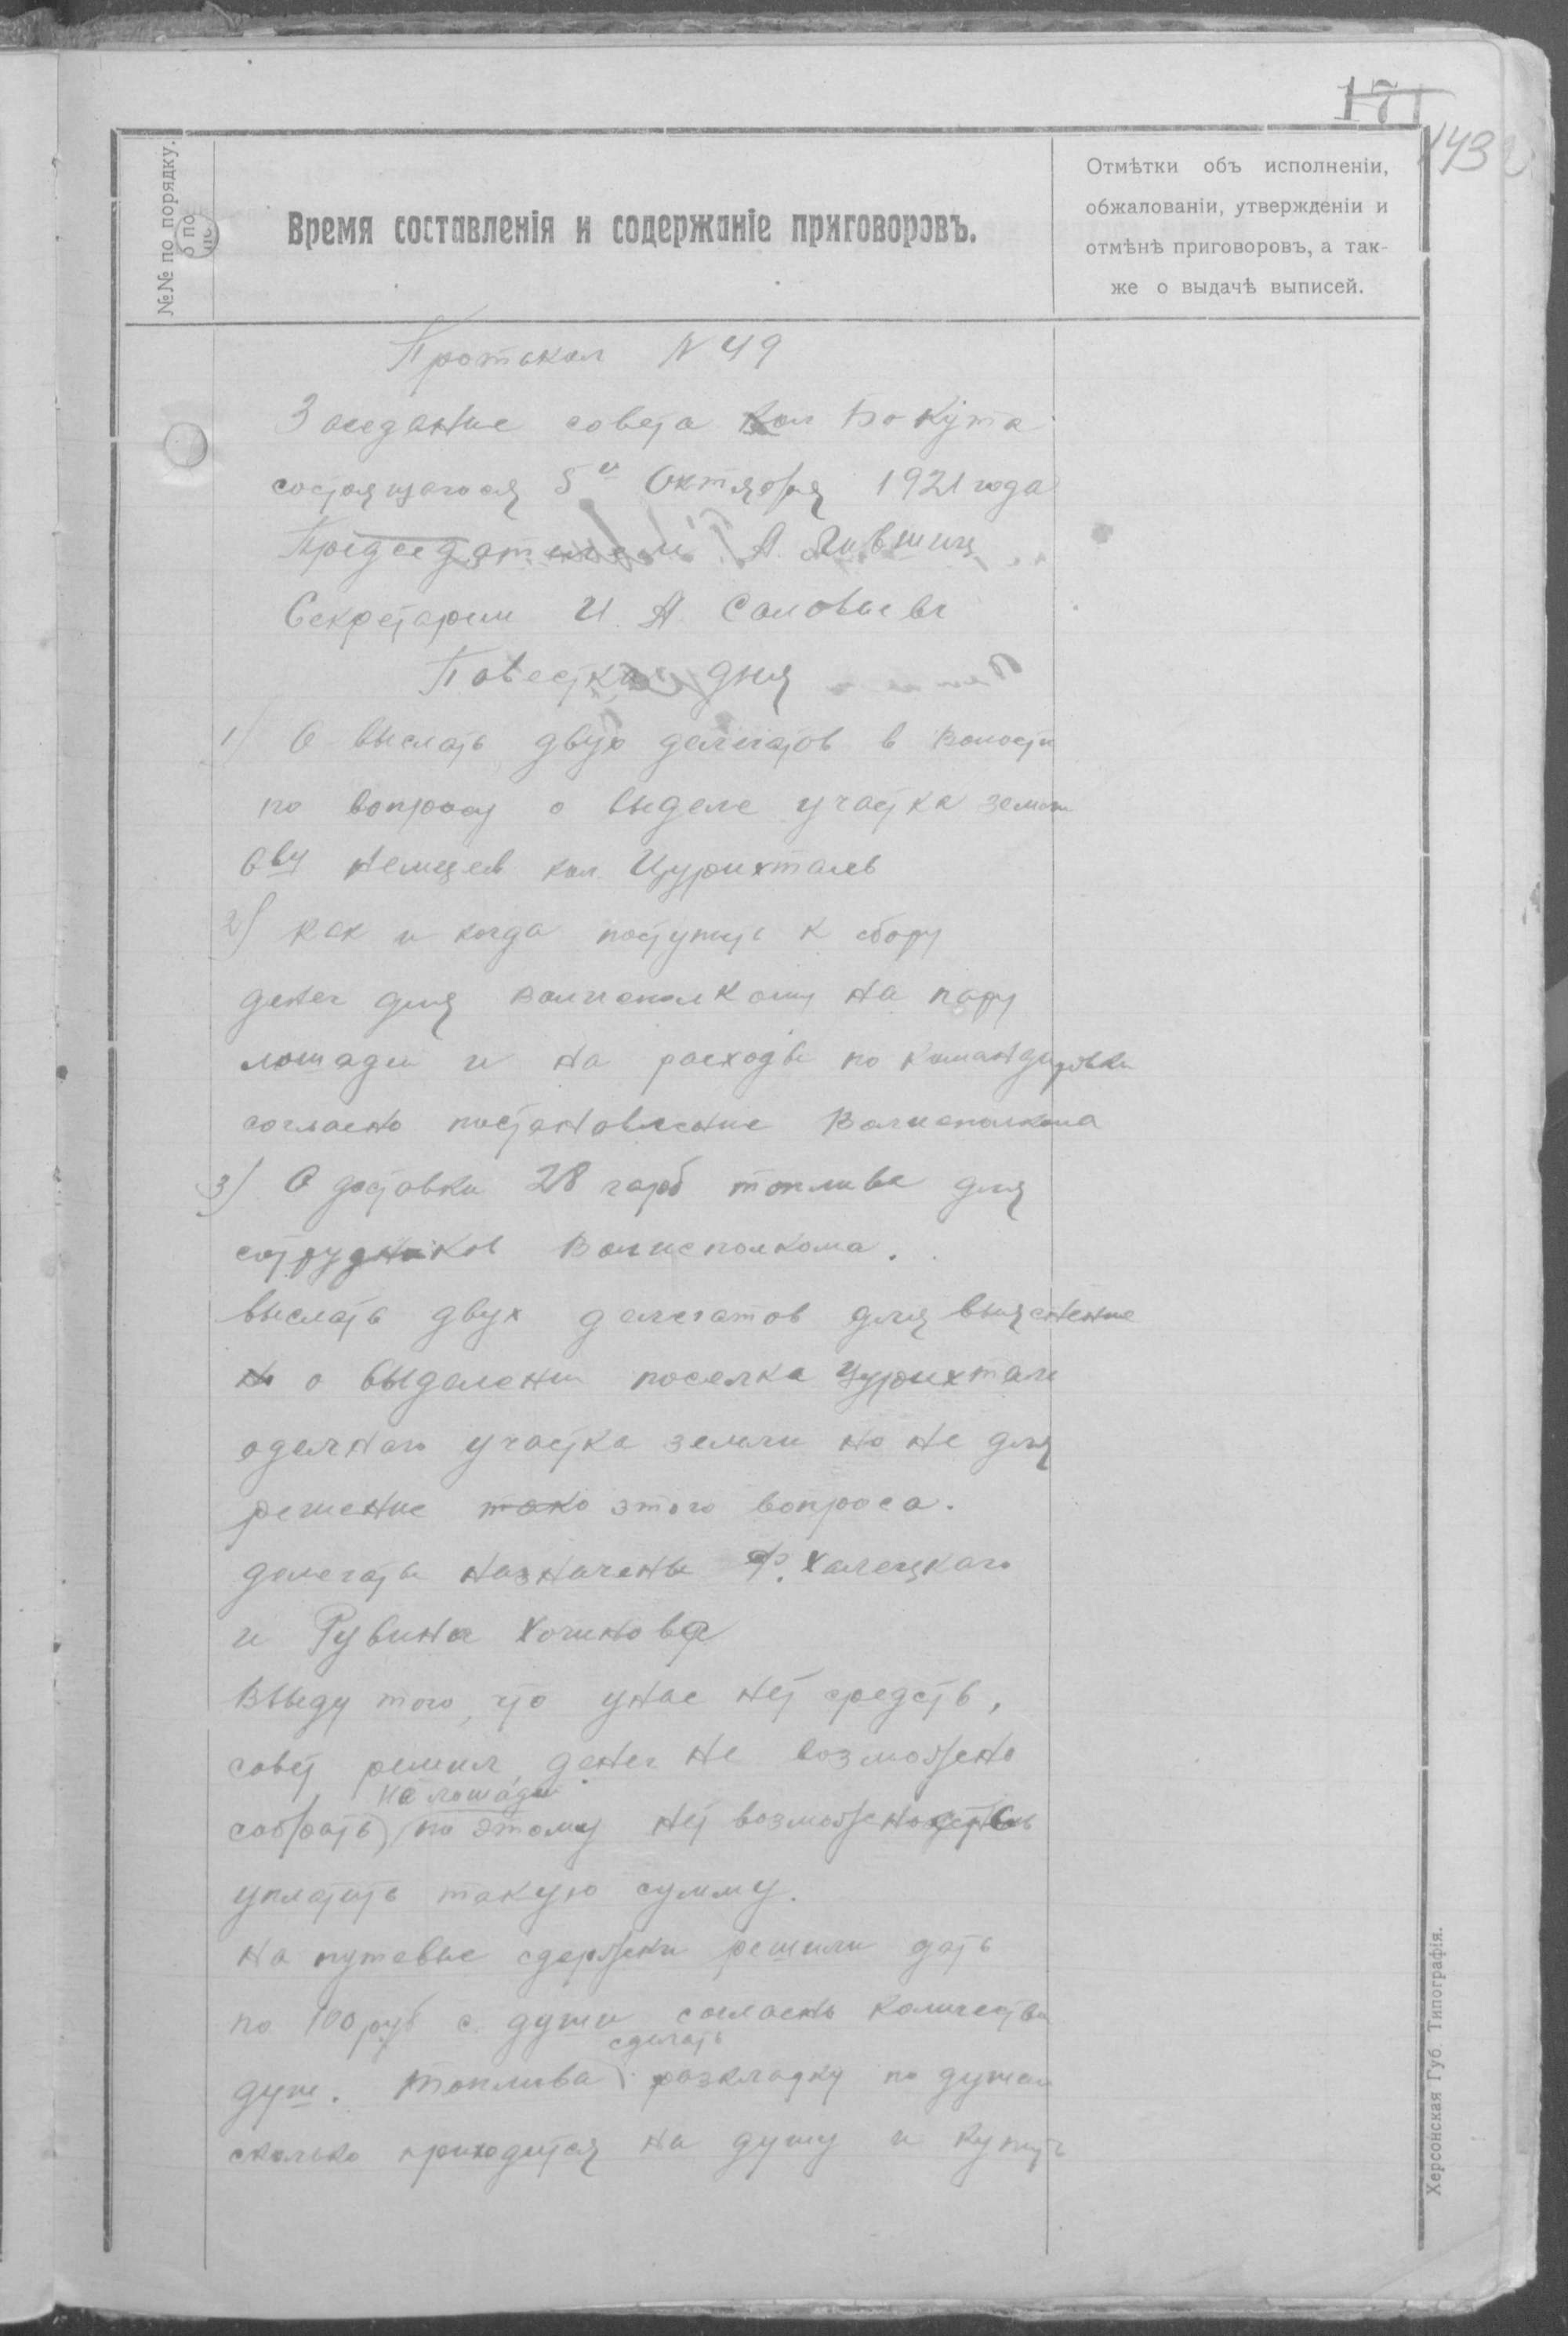 171
143
№№ по порядку.
Время составленія и содержаніе приговоровъ.
Отмѣтки объ исполненіи,
обжалованіи, утвержденіи и
отмѣнѣ приговоровъ, а так-
же о выдачѣ выписей.
Протокол N 49
Заседание совета кол Бокута
состоящагося 5го Октября 1921 года
Председателем А. Лившиц
Секретарем И. А. Соловьев
Повестка дня
1) О выслать двух делегатов в Волости
по вопросу о выделе участка земли
Ову немцев кол. Цурихталь
2) как и когда поступить к сбору
денег для Волисполкому на пару
лошади и на расходы по командировки
согласно постановление Волисполкома
3) О доставки 28 гарб топлива для
сотрудников Волисполкома.
выслать двух делегатов для выяснение
о выделении поселка Цурихталь
одельного участка земли но не для
решение этого вопроса.
делегаты назначены Ф. Халецкаго
и Рувина Хотинова
Ввыду того, что унас нет средств,
совет решил, денег не возможено
на лошади
собрать) по этому нет возможеность
уплатить такую сумму.
на путевые сдержеки решили дать
по 100 руб с души согласно количества
сделать
душ. топлива разкладку по душам
сколько приходится на душу и купить
Херсонская Губ. Типографія.